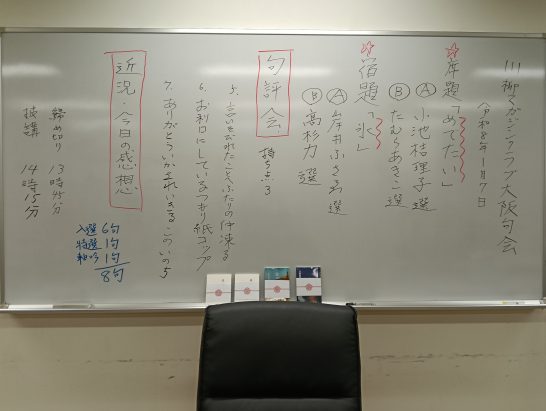 川柳マガジンクラブ大阪句会
令和8年1月7日
☆席題「めでたい」
Ⓐ 小池桔理子 選
Ⓑ たむらあきこ 選
☆宿題「氷」
Ⓐ 岸井ふさゑ 選
Ⓑ 高杉力 選
句評会 持ち点3
5. 言いそびれたことふたりの仲凍る
6. お利口にしているつもり紙コップ
7. ありがとういかされいきるこのいのち
近況・今日の感想
締め切り 13時45分
披講 14時15分
入選 6句
特選 1句
軸吟 1句
8句